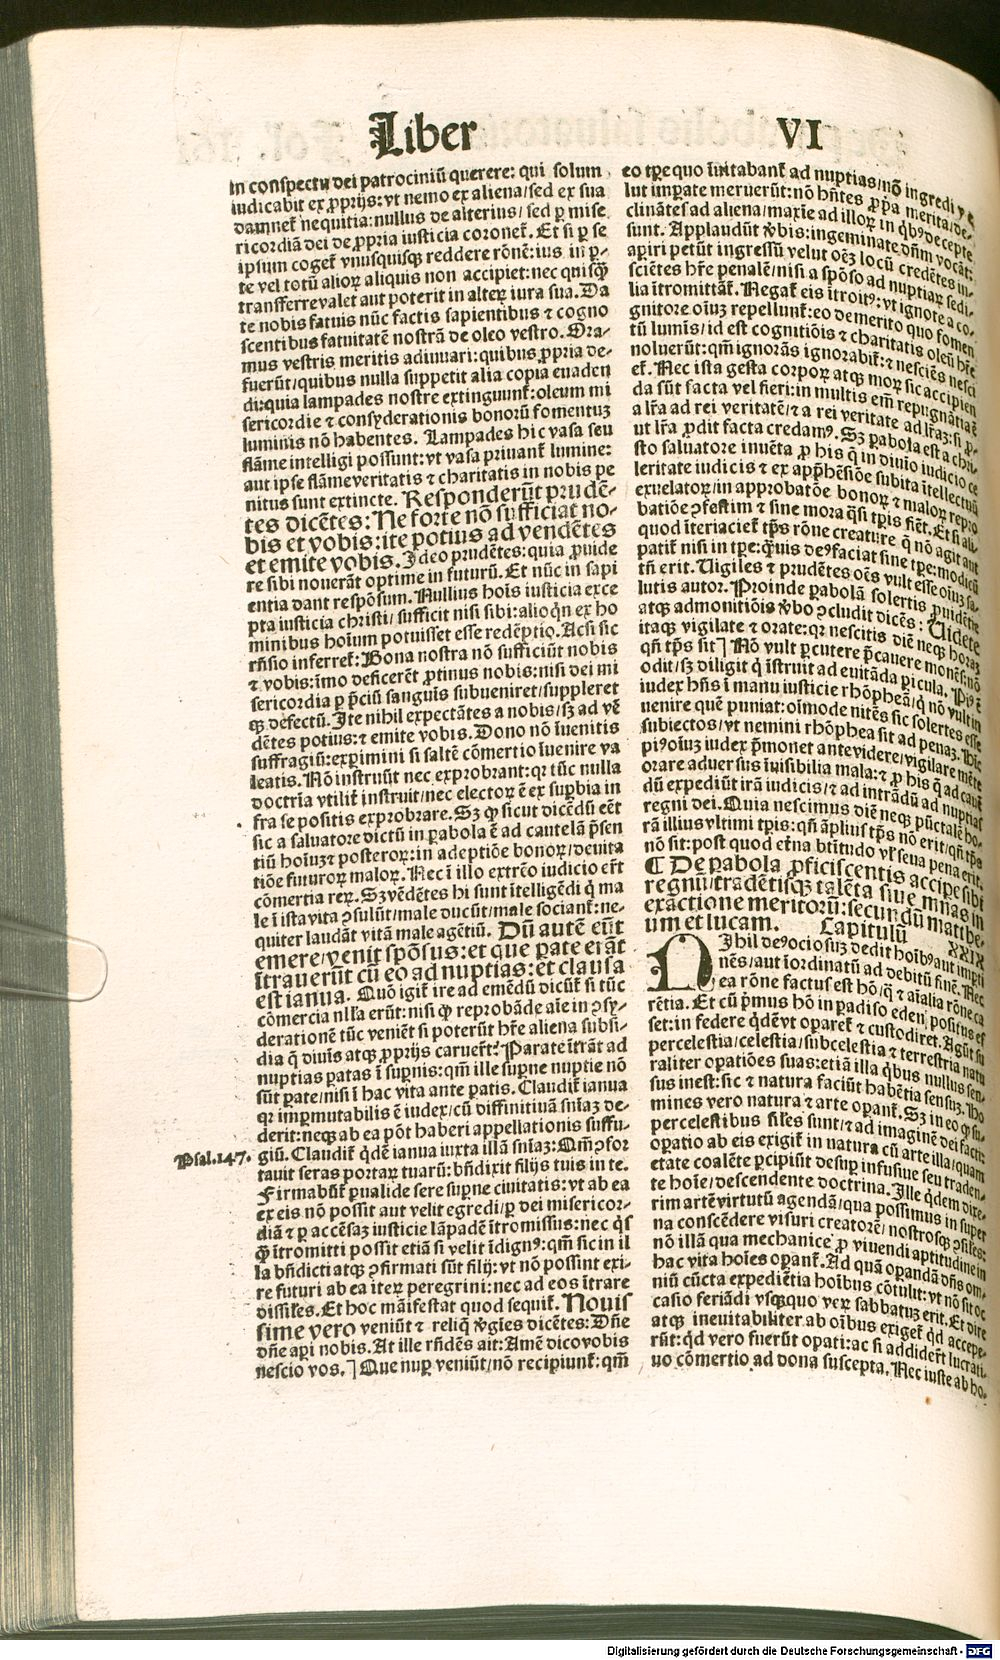 Liber VI
in conspectu dei patrociniū querere: qui solum
iudicabit ex ꝓprijs: vt nemo ex aliena/ sed ex sua
damnet᷑ nequitia: nullus de alterius/ sed ꝑ mise
ricordiā dei de ꝓpria iusticia coronet᷑. Et si ꝑ se
ipsum coget᷑ vnusquisqꝫ reddere rōnē: ius in ꝑ-
te vel totū alioꝝ aliquis non accipiet: nec quisqꝫ̄
transferre valet aut poterit in alteꝝ iura sua. Da
te nobis fatuis nūc factis sapientibus ⁊ cogno
scentibus fatuitatē nostrā de oleo vestro. Ora-
mus vestris meritis adiuuari: quibus ꝓpria de-
fuerūt/ quibus nulla suppetit alia copia euaden
di: quia lampades nostre extinguunt᷑: oleum mi
sericordie ⁊ consyderationis bonorū fomentuꝫ
luminis nō habentes. Lampades hic vasa seu
flāme intelligi possunt: vt vasa priuant᷑ lumine:
aut ipse flāme veritatis ⁊ charitatis in nobis pe
nitus sunt extincte. Responderūt prudē-
tes dicētes: Ne forte nō sufficiat no-
bis et vobis: ite potius ad vendētes
et emite vobis. Ideo prudētes: quia ꝓuide
re sibi nouerāt optime in futurū. Et nūc in sapi
entia dant respōsum. Nullius hoīs iusticia exce
pta iusticia christi/ sufficit nisi sibi: alioqn̄ ex ho
minibus hoīum potuisset esse redēptio. Acsi sic
rn̄sio inferret᷑: Bona nostra nō sufficiūt nobis
⁊ vobis: īmo deficerēt ꝓtinus nobis: nisi dei mi
sericordia ꝑ p̄ciū sanguīs subueniret/ suppleret
qꝫ defectū. Ite nihil expectātes a nobis/ sꝫ ad vē
dētes potius: ⁊ emite vobis. Dono nō īuenitis
suffragiū: experimini si saltē cōmertio īuenire va
leatis. Nō instruūt nec exprobrant: qꝛ tūc nulla
doctrīa vtilit᷑ instruit/ nec electoꝝ ē ex suꝑbia in
fra se positis exprobrare. Sꝫ ꝙ sicut dicēdū eēt
sic a saluatore dictū in ꝑabola ē ad cautelā p̄sen
tiū hoīuꝫ ⁊ posteroꝝ: in adeptiōe bonoꝝ/ deuita
tiōe futuroꝝ maloꝝ. Nec ī illo extrēo iudicio erūt
cōmertia reꝝ. Sꝫ vēdētes hi sunt ītelligēdi q̇ ma
le ī ista vita ↄsulūt/ male ducūt/ male sociant᷑: ne-
quiter laudāt vitā male agētiū. Dū autē eūt
emere/ venit spōsus: et que parate erāt
ītrauerūt cū eo ad nuptias: et clausa
est ianua. Quō igit᷑ ire ad emēdū dicūt᷑ si tūc
cōmercia nlla erūt: nisi ꝙ reprobāde aīe in ↄsy-
derationē tūc veniēt si poterūt hr̄e aliena subsi-
dia q̄ diuīs atqꝫ ꝓprijs caruert̄? Parate ītrāt ad
nuptias ꝑatas ī suꝑnis: qm̄ ille suꝑne nuptie nō
sūt ꝑate/ nisi ī hac vita ante ꝑatis. Claudit᷑ ianua
qꝛ imꝑmutabilis ē iudex/ cū diffinitiuā sn̄iaꝫ de-
derit: neqꝫ ab ea pōt haberi appellationis suffu-
giū. Claudit᷑ q̇dē ianua iuxta illā sn̄iaꝫ: Qm̄ ↄfor
tauit seras portaꝝ tuarū: bn̄dixit filijs tuis in te.
Psal.147.
Firmabūt᷑ ꝑualide sere suꝑne ciuitatis: vt ab ea
ex eis nō possit aut velit egredi/ ꝑ dei misericor-
diā ⁊ ꝑ accēsaꝫ iusticie lāpadē ītromissus: nec q̇s
ꝙ̄ ītromitti possit etiā si velit īdignꝰ: qm̄ sic in il
la bn̄dicti atqꝫ ↄfirmati sūt filij: vt nō possint exi-
re futuri ab ea iteꝝ peregrini: nec ad eos ītrare
dissiles. Et hoc māifestat quod sequit᷑. Nouis
sime vero veniūt ⁊ reliq̄ v̄gies dicētes: Dn̄e
dn̄e aꝑi nobis. At ille rn̄dēs ait: Amē dico vobis
nescio vos.] Que nuꝑ veniūt/ nō recipiunt᷑: qm̄
eo tꝑe quo īuitabant᷑ ad nuptias/ nō ingredi
lut imꝑate meruerūt: nō hn̄tes ꝓp̄a merita/ de-
clinātes ad aliena/ maxīe ad illoꝝ in q̇bꝰ decepte
sunt. Applaudūt v̄bis: ingeminate dn̄m vocāt:
aꝑiri petūt ingressū velut oēꝫ locū credētes in-
sciētes hr̄e penalē/ nisi a spōso ad nuptiaꝝ sedi-
lia ītromittāt᷑. Negat᷑ eis ītroitꝰ: vt ignote a co-
gnitore oīuꝫ repellunt᷑: eo de merito quo fomen
tū lumīs/ id est cognitiōis ⁊ charitatis oleū hr̄e
noluerūt: qm̄ ignorās ignorabit᷑: ⁊ nesciēs nesci
et᷑. Nec ista gesta corpoꝝ atqꝫ moꝝ sic accipien
da sūt facta vel fieri: in multis em̄ repugnātia ē
a lr̄a ad rei veritatē/ ⁊ a rei veritate ad lr̄aꝫ: si ꝓ-
ut lr̄a ꝓdit facta credamꝰ. Sꝫ ꝑabola est a chri-
sto saluatore inuēta ꝓ his q̄ in diuīo iudicio ce
leritate iudicis ⁊ ex app̄hēsiōe subita ītellectuū
exuelatoꝝ/ in approbatōe bonoꝝ ⁊ maloꝝ repro
batiōe ↄfestim ⁊ sine mora q̄si tꝑis fiēt. Et si ali-
quod īteriaciet᷑ tp̄s rōne creature q̄ nō agit aut
patit᷑ nisi in tꝑe: q̇uis deꝰ faciat sine tꝑe: modicū
tn̄ erit. Vigiles ⁊ prudētes oēs vult esse oīuꝫ sa-
lutis autor. Proinde ꝑabolā solertis ꝓuidētie
atqꝫ admonitiōis v̄bo ↄcludit dicēs: Videte
itaqꝫ vigilate ⁊ orate: qꝛ nescitis diē neqꝫ horaꝫ
qn̄ tp̄s sit] Nō vult ꝑcutere p̄cauere monēs: nō
odit/ sꝫ diligit q̇ īstruit ad euitāda ꝑicula. Piꝰ ē
iudex hn̄s ī manu iusticie rhōpheā/ q̄ nō vult in
uenire quē puniat: oīmode nitēs sic solertes esse
subiectos/ vt nemini rhōphea sit ad penaꝫ. Hic
piꝰ oīuꝫ iudex p̄monet antevidere/ vigilare mēte
orare aduersus īuisibilia mala: ⁊ ꝓ his q̄ ad cauē
dū expediūt irā iudicis/ ⁊ ad intrādū ad nuptias
regni dei. Quia nescimus diē neqꝫ pūctalē ho-
rā illius vltimi tꝑis: qn̄ āplius tp̄s nō erit/ qn̄ tp̄a
nō sit: post quod et̄na btītudo vl̓ seua pena erit.
¶ De ꝑabola ꝓficiscentis accipe sibi
regnū/ tradētisqꝫ talēta siue mnas in
exactione meritorū: secundū matthe-
um et lucam. Capitulū XXIX
Nihil deꝰ ociosuꝫ dedit hoībꝰ aut imꝑti
nēs/ aut īordinatū ad debitū finē. Nec
ea rōne factus est hō/ q̄ ⁊ aīalia rōne ca
rētia. Et cū p̄mus hō in ꝑadiso eden positus es
set: in federe q̇dē vt oꝑaret᷑ ⁊ custodiret. Agūt su
percelestia/ celestia/ subcelestia ⁊ terrestria natu
raliter oꝑatiōes suas: etiā illa q̇bus nullus sen-
sus inest: sic ⁊ natura faciūt habētia sensuꝫ. Ho
mines vero natura ⁊ arte oꝑant᷑. Sꝫ in eo ꝙ su-
percelestibus siles sunt/ ⁊ ad imaginē dei facti:
oꝑatio ab eis exigit᷑ in natura cū arte illa/ quam
etate coalēte ꝑcipiūt desuꝑ infusiue seu traden-
te hoīe/ descendente doctrina. Ille q̇dem dixe-
rim artē virtutū agendā/ qua possimus in super
na conscēdere visuri creatorē/ nostrosqꝫ ↄsiles:
nō illā qua mechanice ꝓ viuendi aptitudine in
hac vita hoīes oꝑant᷑. Ad quā oꝑandā dn̄s om-
niū cūcta expediētia hoībus cōtulit: vt nō sit oc
casio feriādi vsqꝫquo veꝝ sabbatuꝫ erit. Et dire
atqꝫ ineuitabiliter ab oībus exiget᷑ qd̓ accepe-
rūt: qd̓ vero fuerūt oꝑati: ac si addidert̄ lucrati-
uo cōmertio ad dona suscepta. Nec iuste ab ho-
Digitalisierung gefördert durch die Deutsche Forschungsgemeinschaft - DFG